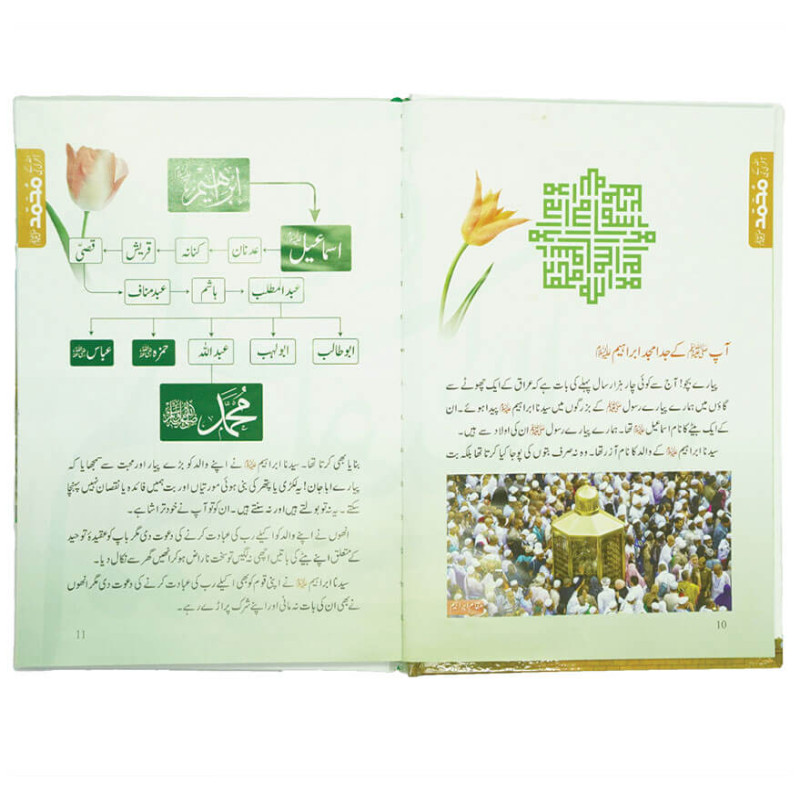 محمد
آپ ﷺ کے جد امجد ابراہیم علیہ السلام
پیارے بچو! آج سے کوئی چار ہزار سال پہلے کی بات ہے کہ عراق کے ایک چھوٹے سے
گاؤں میں ہمارے پیارے رسول ﷺ کے بزرگوں میں سیدنا ابراہیم علیہ السلام پیدا ہوئے۔ ان
کے ایک بیٹے کا نام اسماعیل علیہ السلام تھا۔ ہمارے پیارے رسول ﷺ ان کی اولاد سے ہیں۔
سیدنا ابراہیم علیہ السلام کے والد کا نام آزر تھا۔ وہ نہ صرف بتوں کی پوجا کیا کرتا تھا بلکہ بت
مقام ابراہیم
10
محمد
ابراهيم
اسماعیل علیہ السلام
عدنان
کنانہ
قریش
قصیّ
عبدمناف
ہاشم
عبدالمطلب
ابوطالب
ابولہب
عبداللہ
حمزہ
عباس
محمد ﷺ
بنایا بھی کرتا تھا۔ سیدنا ابراہیم علیہ السلام نے اپنے والد کو بڑے پیار اور محبت سے سمجھایا کہ
پیارے ابا جان! یہ لکڑی یا پتھر کی بنی ہوئی مورتیاں اور بت ہمیں فائدہ یا نقصان نہیں پہنچا
سکتے۔ یہ نہ تو بولتے ہیں اور نہ سنتے ہیں۔ ان کو تو آپ نے خود تراشا ہے۔
انھوں نے اپنے والد کو اکیلے رب کی عبادت کرنے کی دعوت دی مگر باپ کو عقیدۂ توحید
کے متعلق اپنے بیٹے کی باتیں اچھی نہ لگیں تو سخت ناراض ہو کر انھیں گھر سے نکال دیا۔
سیدنا ابراہیم علیہ السلام نے اپنی قوم کو بھی اکیلے رب کی عبادت کرنے کی دعوت دی مگر انھوں
نے بھی ان کی بات نہ مانی اور اپنے شرک پر اڑے رہے۔
11